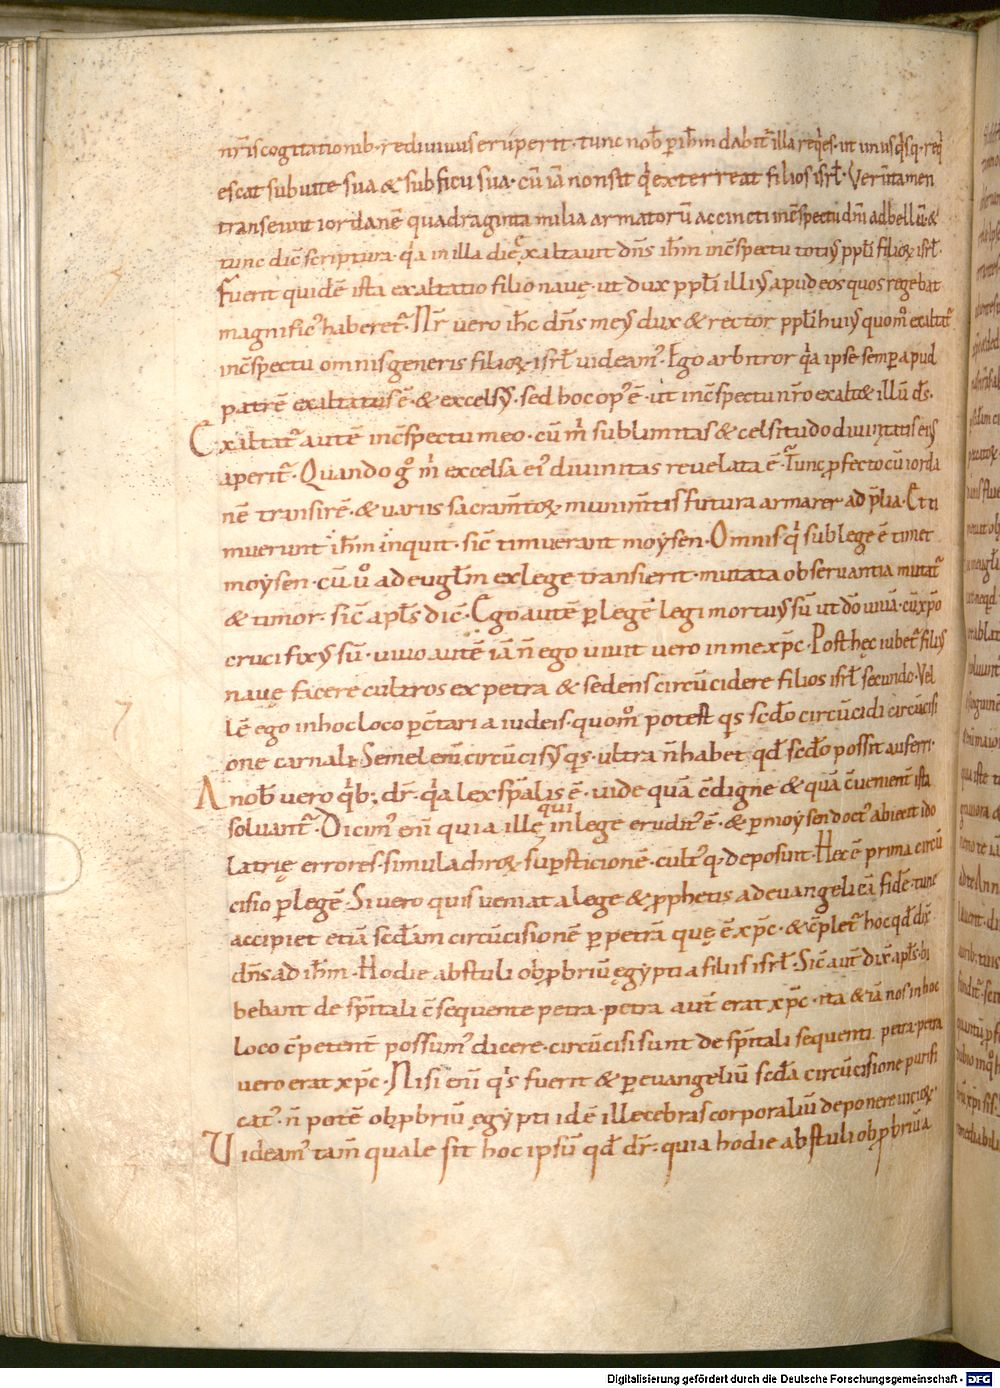 nr̄is cogitationib· redivivus eruperit· tunc nob̄ p ih̄m dabit᷒ illa req̇es· ut unusq̇sq· req̇
escat sub vite sua & sub ficu sua· cū iā non sit q̇ exterreat filios isrl̄· Verūtamen
transeunt iordanē quadraginta milia armatorū accincti inc̄spectu dn̄i ad bellū· &
tunc dic̄ scriptura· q̇a in illa die exaltavit dn̄s ih̄m inc̄spectu totiꝰ ppl̄i filioꝝ isrl̄·
Fuerit quidē ista exaltatio filio nauę· ut dux ppl̄i illiꝰ apud eos quos regebat
magnificꝰ haberet᷒· Nr̄ vero ih̄c dn̄s meꝰ dux & rector ppl̄i huiꝰ quom̊ exaltat᷒
inc̄spectu omnis generis filioꝝ isrl̄ videamꝰ· Ego arbitror q̇a ipse semp apud
patrē exaltatus ē· & excelsꝰ· sed hoc opꝰ ē· ut inc̄spectu nr̄o exalt& illū d̄s·
Exaltat᷒ autē inc̄spectu meo· cū m̄ sublimitas & celsitudo divinitatis eiꝰ
aperit᷒· Quando g̊ m̄ excelsa eiꝰ divinitas revelata ē· Tunc ꝓfecto cū iorda
nē transirē· & variis sacram̄toꝝ munim̄tis futura armarer ad p̄lia· Et ti
muerunt ih̄m inquit· sic̄ timuerant moẏsen· Omnis q̇ sub lege ē timet
moẏsen· cū v̊ ad eugl̄m ex lege transierit· mutata observantia mutat᷒
& timor· sic̄ apl̄s dic̄· Ego autē p legē legi mortuꝰ sū ut dō vivā· cū xp̄o
crucifixꝰ sū· vivo autē iā n̄ ego vivit vero in me xp̄c· Post hęc iubet᷒ filiꝰ
nauę facere cultros ex petra & sedens circūcidere filios isrl̄ secundo· Vel
lē ego in hoc loco p c̄tari a iudeis· quom̊ potest q̇s scd̄o circūcidi circūcisi
one carnali· Semel enī circūcisꝰ q̇s· ultra n̄ habet qd̄ scd̄o possit auferri·
A nob̄ vero q̇b; dr̄· q̇a lex spalis ē· vide quā c̄digne & quā c̄venient̄ ista
solvant᷒· Dicimꝰ enī quia ille qui in lege eruditꝰ ē· & p moẏsen doctꝰ abiecit ido
latrię errores· simulachroꝝ supsticionē· cultūq· deposuit· Hec ē prima circū
cisio p legē· Si vero quis veniat a lege & ꝓphetis ad evangelicā fidē· tunc
accipiet etiā scd̄am circūcisionē p petrā quę ē xp̄c· & c̄plet᷒ hoc qd̄ dix̄
dn̄s ad ih̄m· Hodie abstuli obꝓbriū ęgẏpti a filiis isrl̄· Sic̄ aut̄ dix̄ apl̄s· bi
bebant de sp̄itali c̄sequente petra· petra aut̄ erat xp̄c· ita & iā nos in hoc
loco c̄petent̄ possumꝰ dicere· circūcisi sunt de sp̄itali sequenti petra· petra
vero erat xp̄c· Nisi enī q̇s fuerit & p evangeliū scd̄a circūcisione purifi
catꝰ· n̄ potē obꝓbriū ęgẏpti idē illecebras corporaliū deponere vicioꝝ·
Videamꝰ tam̄ quale sit hoc ipsū qd̄ dr̄· quia hodie abstuli obꝓbriū a
Digitalisierung gefördert durch die Deutsche Forschungsgemeinschaft - DFG